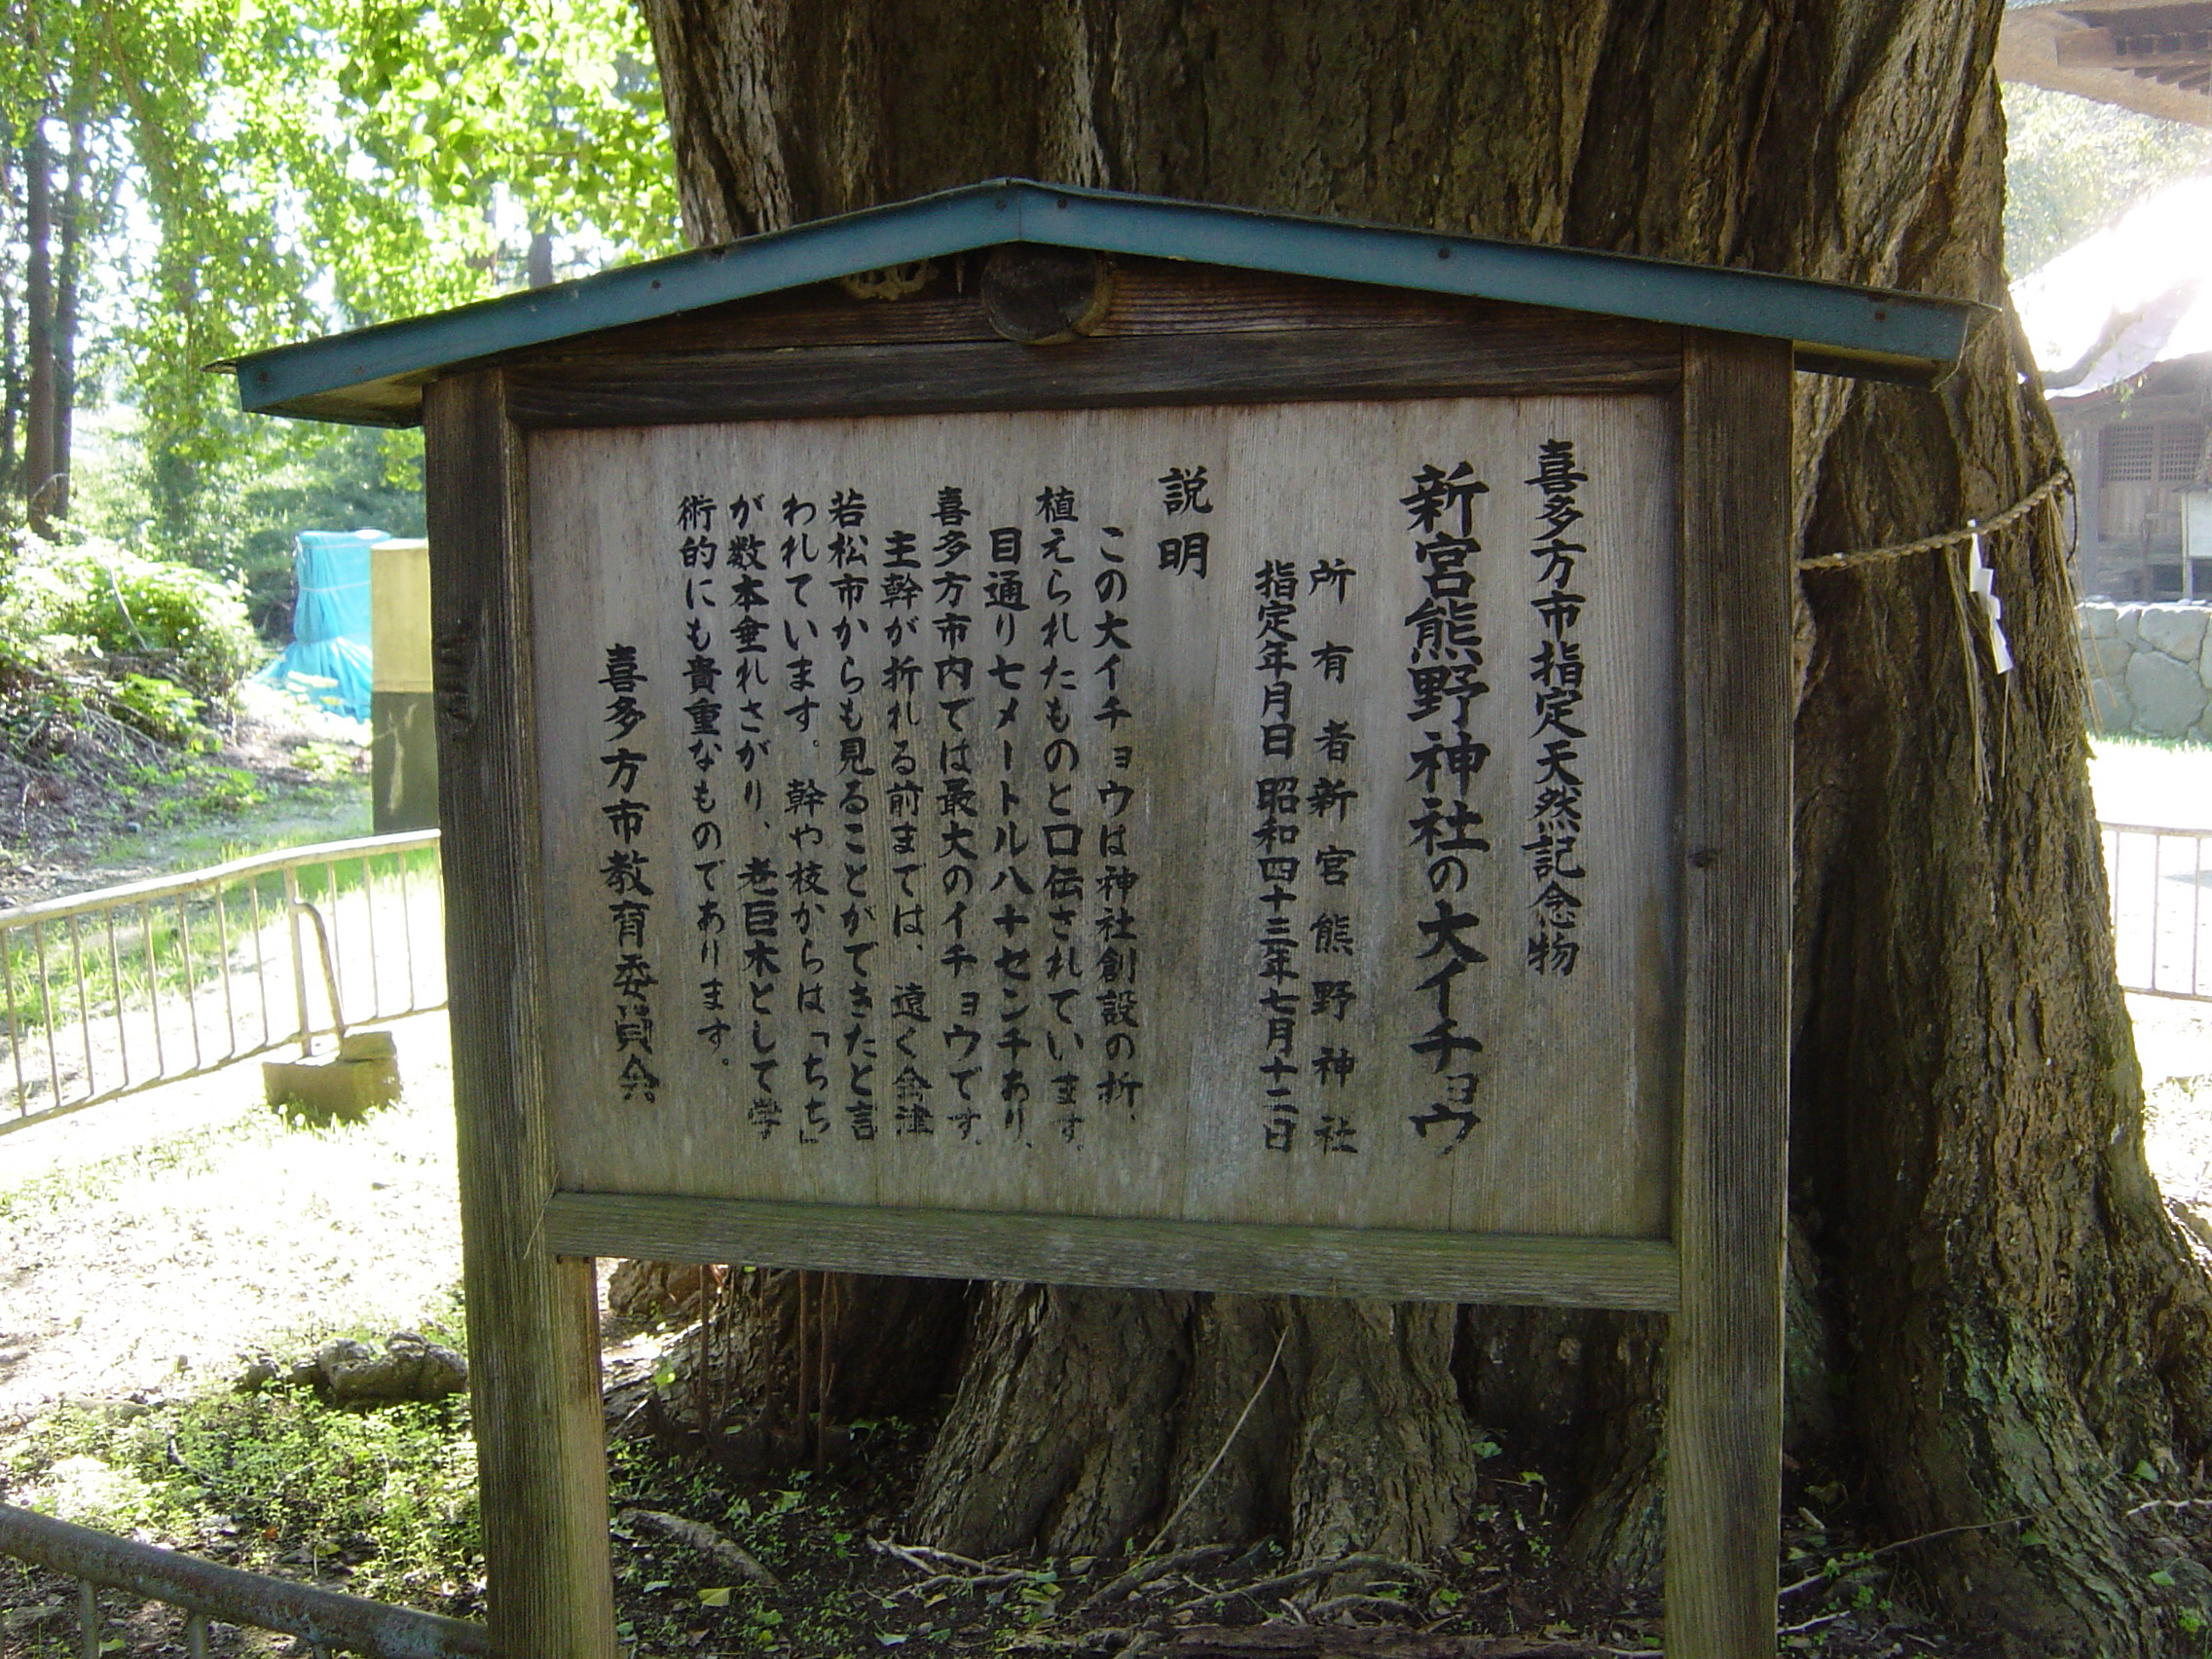 喜多方市指定天然記念物
新宮熊野神社の大イチョウ
所有者新宮熊野神社
指定年月日 昭和四十三年七月十二日
説明
この大イチョウは神社創設の折、
植えられたものと口伝されています。
目通り七メートル八十センチあり、
喜多方市内では最大のイチョウです。
主幹が折れる前までは、遠く会津
若松市からも見ることができたと言
われています。幹や枝からは「ちち」
が数本垂れさがり、老巨木として学
術的にも貴重なものであります。
喜多方市教育委員会